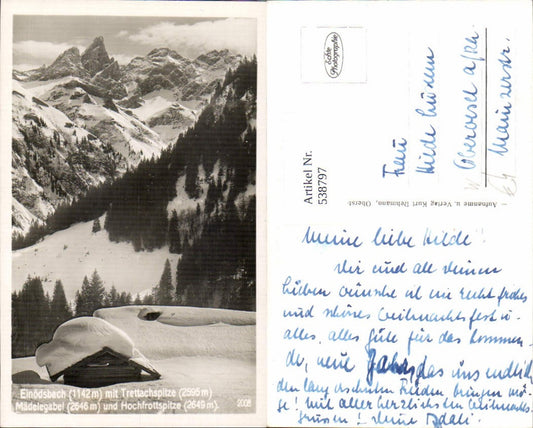 Einödsbach (1142 m) mit Trettachspitze (2595 m)
Mädelegabel (2646 m) und Hochfrottspitze (2649 m).
2008
Echte
Photographie
Artikel Nr.
538797
Aufnahme u. Verlag Kurt Rehmann, Oberst-
Frau
Hilde Hüsen
Oberwesel a/Rh.
Mainzerstr.
Meine liebe Hilde!
Dir und all deinen
lieben wünsche ich ein recht frohes
und schönes Weihnachtsfest u.
alles, alles Gute für das kommen-
de, neue Jahr, das uns endlich
den lang ersehnten Frieden bringen mö-
ge! Mit allerherzlichsten Weihnachts-
grüssen! Deine